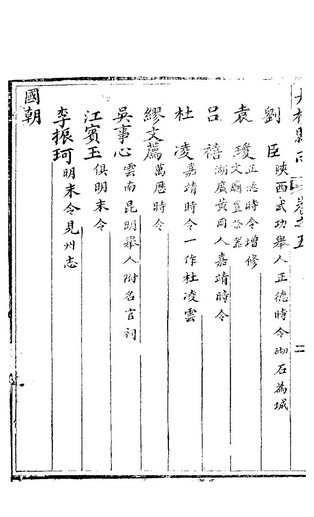 卷之五
二
劉臣 陝西武功舉人正德時令砌石為城
袁瓊 正德時令增修
文廟
呂禧 湖廣黃岡人嘉靖時令
杜凌 嘉靖時令一作杜凌雲
繆文薦 萬曆時令
吳事心 雲南昆明舉人附名宦祠
江賓玉 俱明末令
李振珂 明末令見州志
國朝